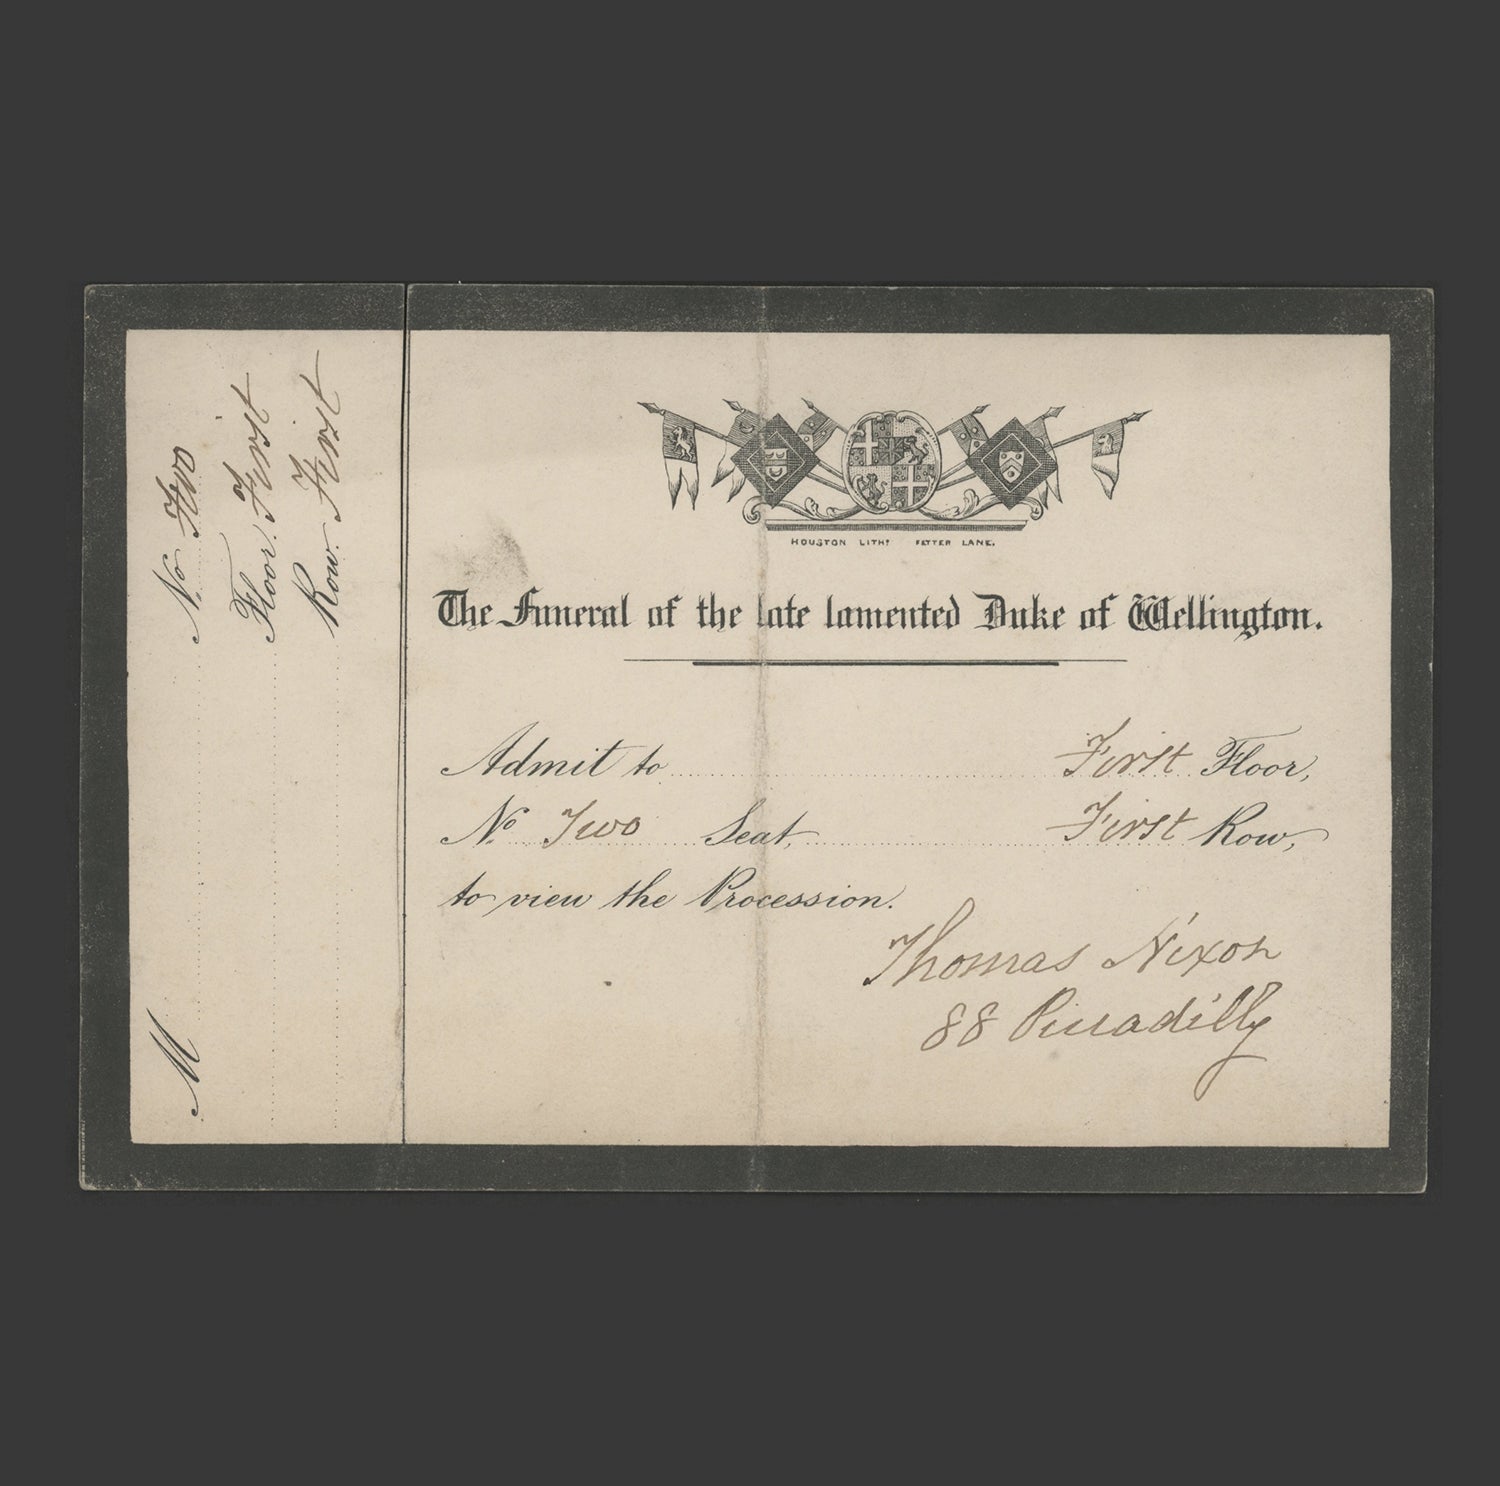 No. Two
Floor. First
Row. First
M
HOUSTON LITHR FETTER LANE.
The Funeral of the late lamented Duke of Wellington.
Admit to First Floor,
No. Two Seat, First Row,
to view the Procession.
Thomas Nixon
88 Piccadilly